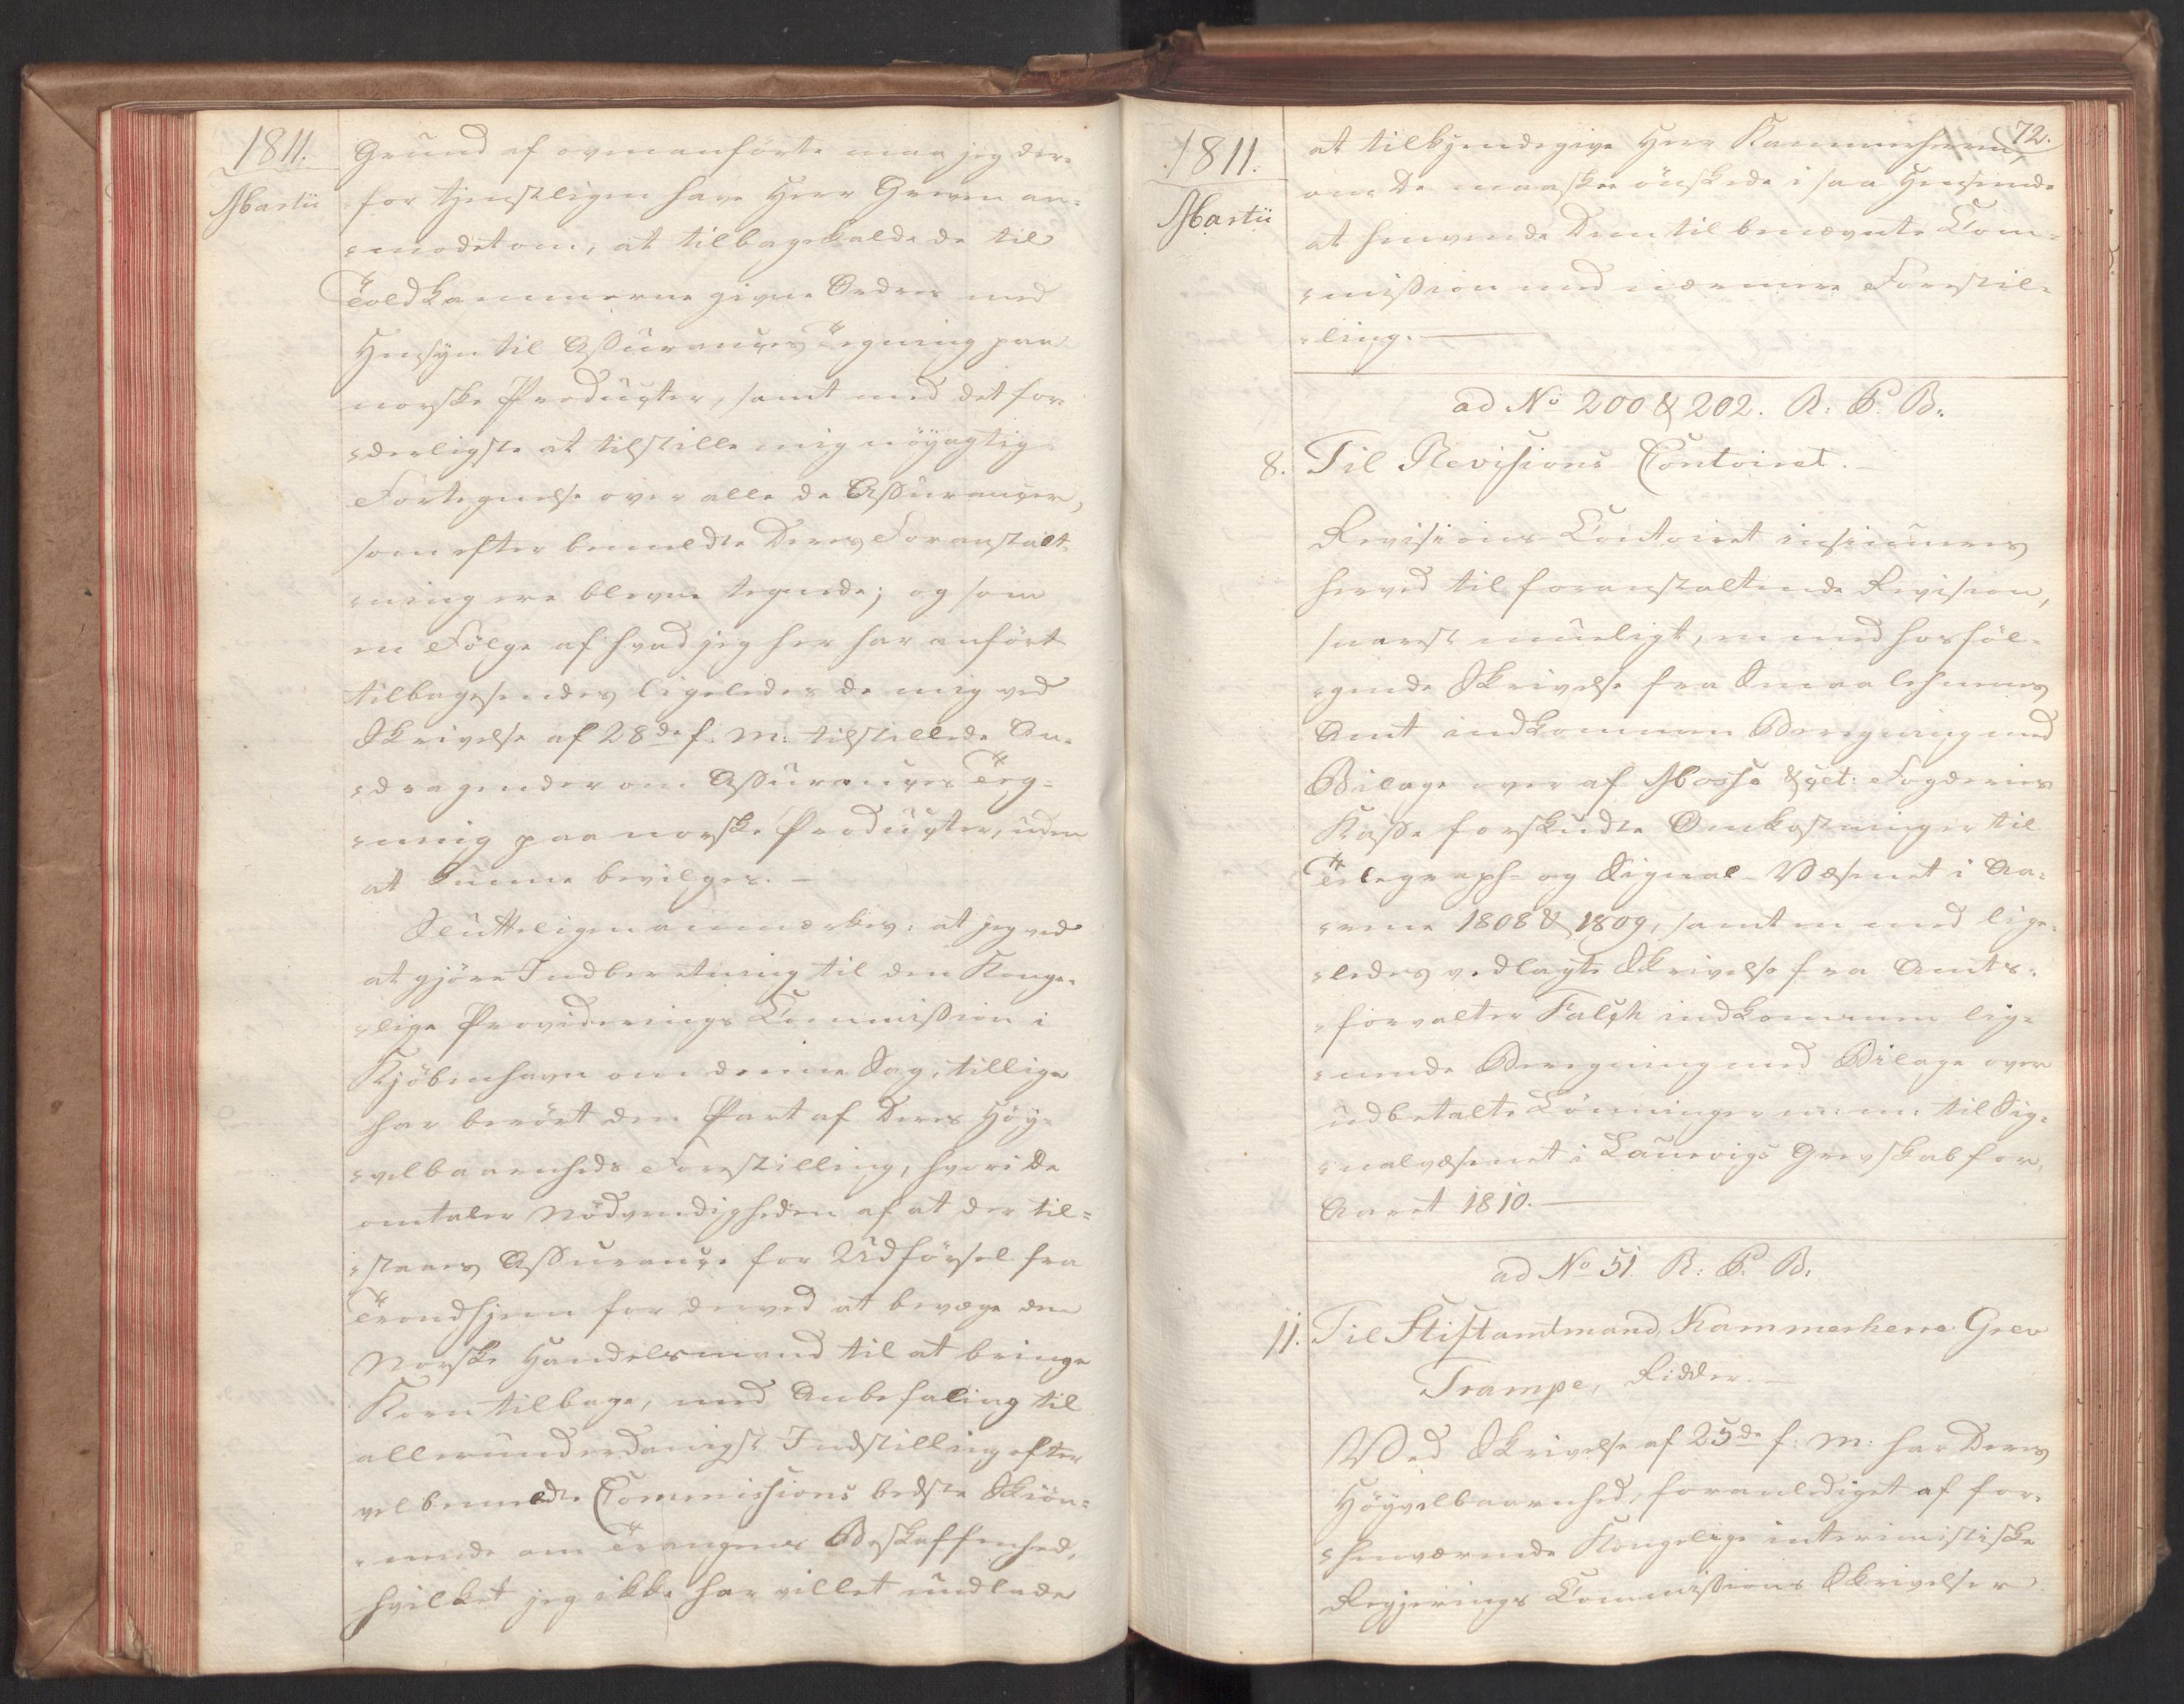 1811.
Martii
Grund af ovenanförte maa jeg der-
for tjenstligen have Herr Greven an-
modet om, at tilbagekalde de til
Toldkammerne givne Ordrer med
Hensyn til Assurance Tegning paa
norske Producter, samt med det for-
derligste at tilstille mig nöyagtig
Fortegnelse over alle de Assurancer,
som efter bemeldte Deres Foranstalt-
ning ere blevne tegnede; og som
en Fölge af hvad jeg her har anfört
tilbagesendes ligeledes de mig ved
Skrivelse af 28de f. M: tilstillede An-
dragender om Assurance Teg-
ning paa norske Producter, uden
at kunne bevilges. —
Sluttelig anmærkes: at jeg ved
at gjöre Indberetning til den Konge-
lige Provideerings Commission i
Kjöbenhavn om denne Sag, tillige
har berört den Part af Deres Höy-
velbaarenheds Forestilling, hvori De
omtaler Nödvendigheden af at der til-
staaes Assurance for Udförsel fra
Trondhjem for derved at bevæge den
Norske Handelsmand til at bringe
Korn tilbage, med Anbefaling til
allerunderdanigst Indstilling efter
velbemeldte Commissions bedste Skiön-
nende om Trangens Beskaffenhed,
hvilket jeg ikke har villet undlade
72.
1811.
Martii
at tilkjendegive Herr Kammerherren,
om De maaskee önskede i saa Henseende
at henvende Dem til benævnte Com-
mission med nærmere Forestil-
ling. —
ad No 200 & 202. R: C. B.
8. Til Revisions Contoiret. —
Revisions Contoiret insinueres
herved til foranstaltende Revision,
snarest mueligt, en med hosföl-
gende Skrivelse fra Smaalehnenes
Amt indkommen Beregning med
Bilage over af Mosse &ct: Fogderies
Kasse forskudte Omkostninger til
Telegraph- og Signal-Væsenet i Aa-
rene 1808 & 1809, samt en med lige-
ledes vedlagte Skrivelse fra Amts-
forvalter Falch indkommen lig-
nende Beregning med Bilage over
udbetalte Lönninger m: m: til Sig-
nalvæsenet i Laurvigs Grevskab for
Aaret 1810. —
ad No 51 R: C. B.
11. Til Stiftamtmand, Kammerherre Grev
Trampe, Ridder. —
Ved Skrivelse af 25de f: M: har Deres
Höyvelbaarenhed, foranlediget af for-
henværende Kongelige interimistiske
Regjerings Commissions Skrivelser